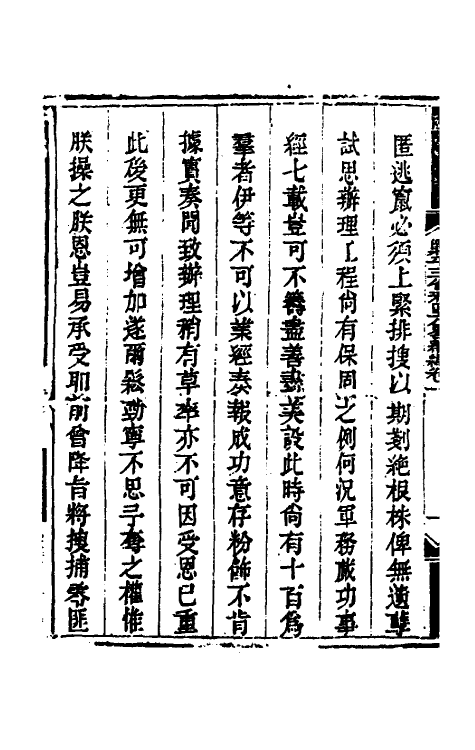 匿逃竄必須上緊排搜以期剗絕根株俾無遺孽
試思辦理工程尙有保固之例何況軍務蕆功事
經七載豈可不籌盡善盡美設此時尙有十百爲
羣者伊等不可以業經奏報成功意存粉飾不肯
據實奏聞致辦理稍有草率亦不可因受恩已重
此後更無可增加遂爾鬆勁寧不思予奪之權惟
朕操之朕恩豈易承受耶前曾降旨將搜捕零匪